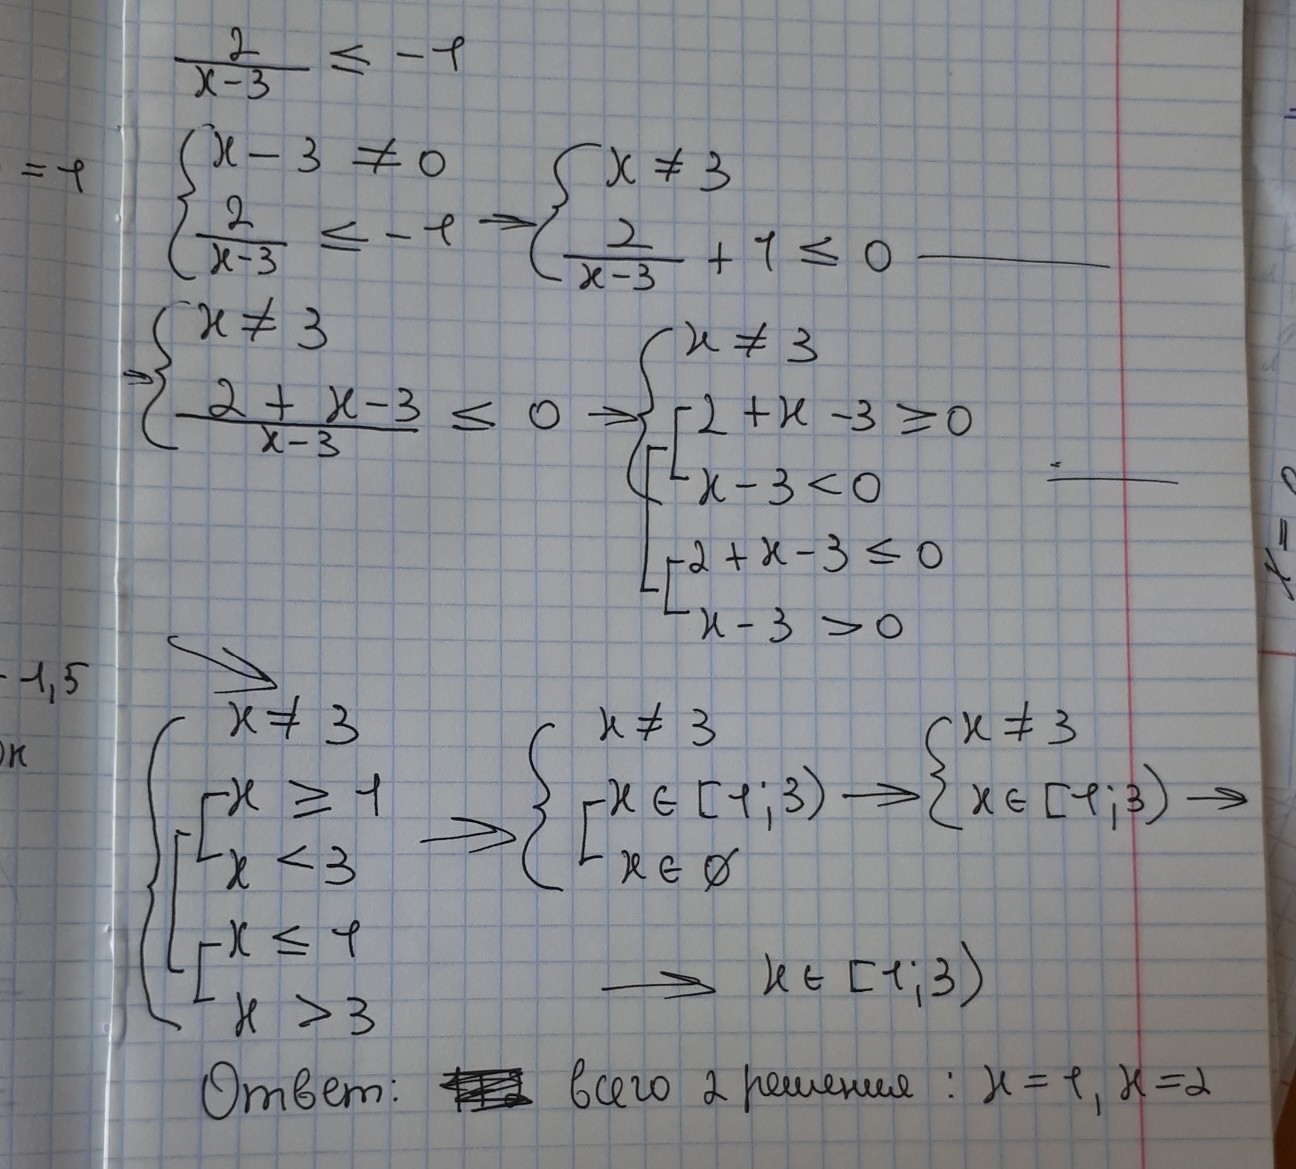 2/(x-3) ≤ -1
{ x-3 ≠ 0 { x ≠ 3
= 1
2/(x-3) ≤ -1 → 2/(x-3) + 1 ≤ 0
→ { x ≠ 3 { x ≠ 3
(2 + x-3)/(x-3) ≤ 0 → [ 2+x-3 ≥ 0
x-3 < 0
[ 2+x-3 ≤ 0
x-3 > 0
- 1,5
{ x ≠ 3 { x ≠ 3 { x ≠ 3
[ x ≥ 1 → [ x ∈ [1;3) → x ∈ [1;3) →
x < 3 x ∈ ∅
[ x ≤ 1
→ x ∈ [1;3)
x > 3
Ответ: всего 2 решения : x=1, x=2